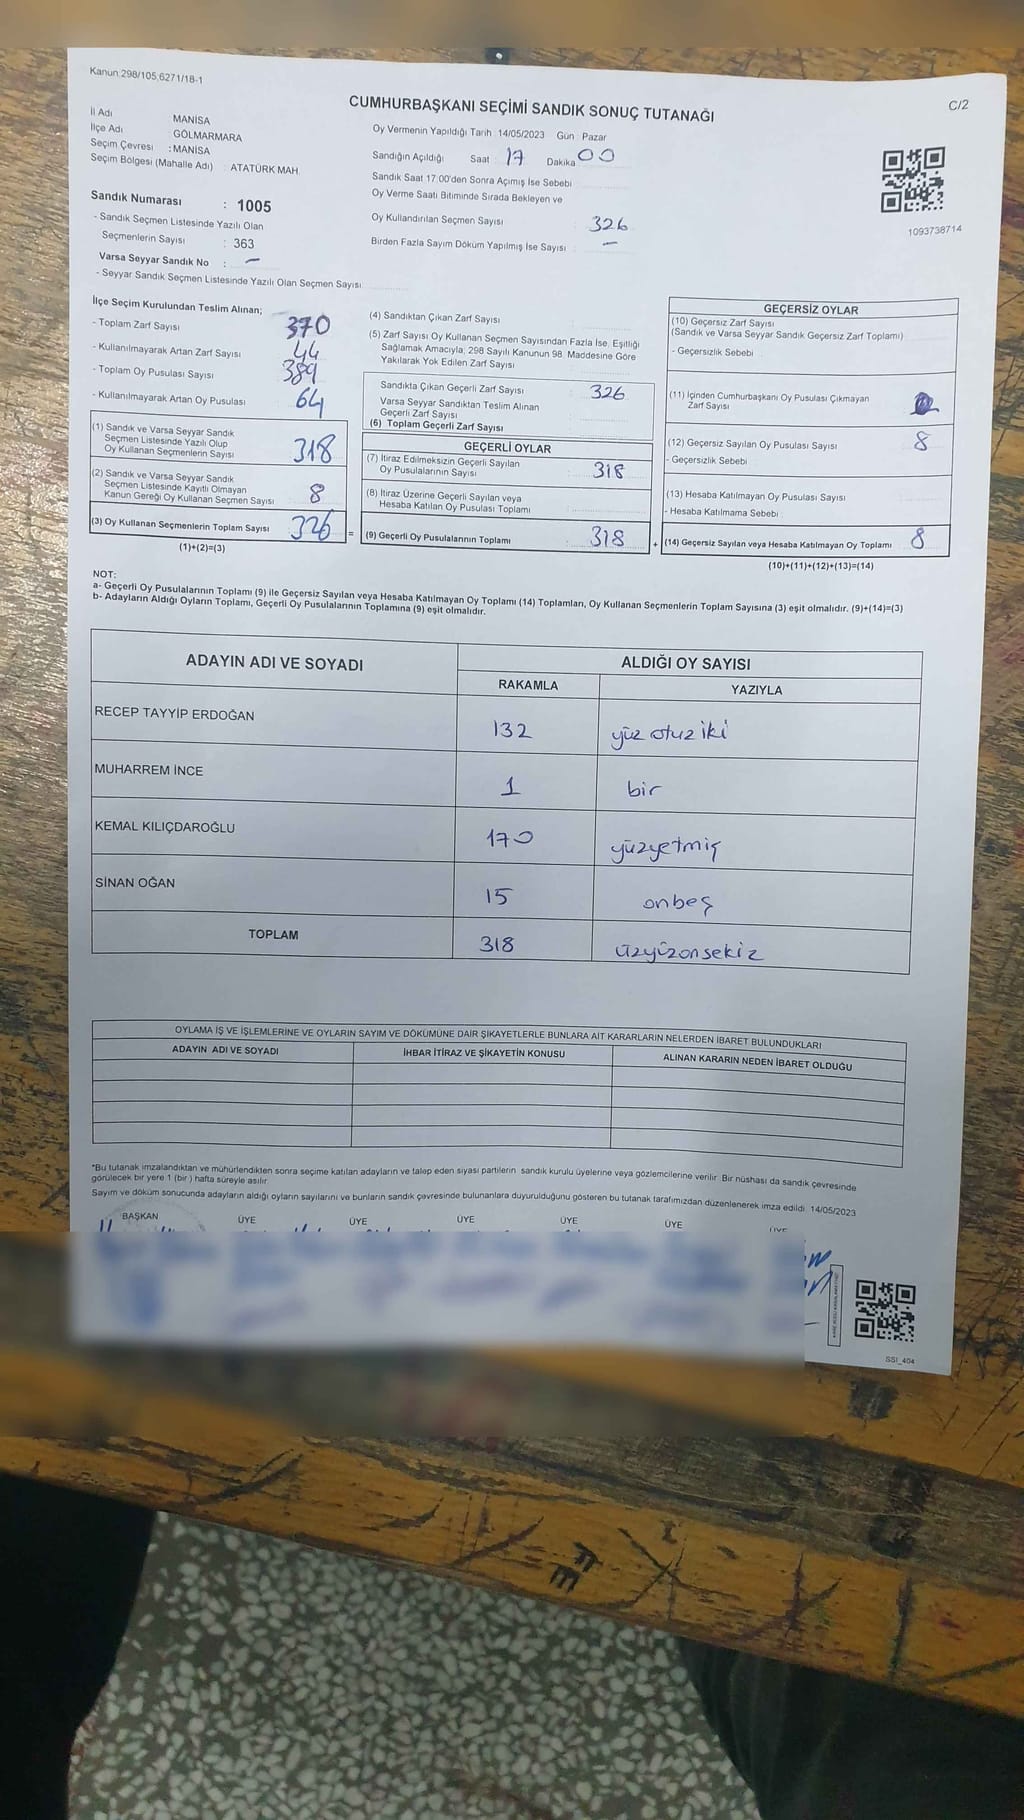 Kanun:298/105,6271/18-1
C/2
CUMHURBAŞKANI SEÇİMİ SANDIK SONUÇ TUTANAĞI
İl Adı MANİSA
İlçe Adı : GÖLMARMARA
Seçim Çevresi : MANİSA
Seçim Bölgesi (Mahalle Adı) : ATATÜRK MAH.
Sandık Numarası : 1005
- Sandık Seçmen Listesinde Yazılı Olan
Seçmenlerin Sayısı : 363
Varsa Seyyar Sandık No : -
- Seyyar Sandık Seçmen Listesinde Yazılı Olan Seçmen Sayısı
Oy Vermenin Yapıldığı Tarih :14/05/2023 Gün : Pazar
Sandığın Açıldığı Saat 17 Dakika 00
Sandık Saat 17:00'den Sonra Açımış İse Sebebi
Oy Verme Saati Bitiminde Sırada Bekleyen ve
Oy Kullandırılan Seçmen Sayısı 326
Birden Fazla Sayım Döküm Yapılmış İse Sayısı : -
1093738714
İlçe Seçim Kurulundan Teslim Alınan;
- Toplam Zarf Sayısı 370
- Kullanılmayarak Artan Zarf Sayısı 44
- Toplam Oy Pusulası Sayısı 389
- Kullanılmayarak Artan Oy Pusulası 64
(1) Sandık ve Varsa Seyyar Sandık
Seçmen Listesinde Yazılı Olup
Oy Kullanan Seçmenlerin Sayısı 318
(2) Sandık ve Varsa Seyyar Sandık
Seçmen Listesinde Kayıtlı Olmayan
Kanun Gereği Oy Kullanan Seçmen Sayısı 8
(3) Oy Kullanan Seçmenlerin Toplam Sayısı 326 =
(1)+(2)=(3)
(4) Sandıktan Çıkan Zarf Sayısı
(5) Zarf Sayısı Oy Kullanan Seçmen Sayısından Fazla İse, Eşitliği
Sağlamak Amacıyla, 298 Sayılı Kanunun 98. Maddesine Göre
Yakılarak Yok Edilen Zarf Sayısı
Sandıkta Çıkan Geçerli Zarf Sayısı : 326
Varsa Seyyar Sandıktan Teslim Alınan
Geçerli Zarf Sayısı
(6) Toplam Geçerli Zarf Sayısı
GEÇERLİ OYLAR
(7) İtiraz Edilmeksizin Geçerli Sayılan
Oy Pusulalarının Sayısı : 318
(8) İtiraz Üzerine Geçerli Sayılan veya
Hesaba Katılan Oy Pusulası Toplamı
(9) Geçerli Oy Pusulalarının Toplamı : 318 +
GEÇERSİZ OYLAR
(10) Geçersiz Zarf Sayısı
(Sandık ve Varsa Seyyar Sandık Geçersiz Zarf Toplamı)
- Geçersizlik Sebebi
(11) İçinden Cumhurbaşkanı Oy Pusulası Çıkmayan
Zarf Sayısı
(12) Geçersiz Sayılan Oy Pusulası Sayısı 8
- Geçersizlik Sebebi
(13) Hesaba Katılmayan Oy Pusulası Sayısı
- Hesaba Katılmama Sebebi
(14) Geçersiz Sayılan veya Hesaba Katılmayan Oy Toplamı 8
(10)+(11)+(12)+(13)=(14)
NOT:
a- Geçerli Oy Pusulalarının Toplamı (9) ile Geçersiz Sayılan veya Hesaba Katılmayan Oy Toplamı (14) Toplamları, Oy Kullanan Seçmenlerin Toplam Sayısına (3) eşit olmalıdır. (9)+(14)=(3)
b- Adayların Aldığı Oyların Toplamı, Geçerli Oy Pusulalarının Toplamına (9) eşit olmalıdır.
ADAYIN ADI VE SOYADI ALDIĞI OY SAYISI
RAKAMLA YAZIYLA
RECEP TAYYİP ERDOĞAN 132 yüz otuz iki
MUHARREM İNCE 1 bir
KEMAL KILIÇDAROĞLU 170 yüzyetmiş
SİNAN OĞAN 15 onbeş
TOPLAM 318 üzyüzonsekiz
OYLAMA İŞ VE İŞLEMLERİNE VE OYLARIN SAYIM VE DÖKÜMÜNE DAİR ŞİKAYETLERLE BUNLARA AİT KARARLARIN NELERDEN İBARET BULUNDUKLARI
ADAYIN ADI VE SOYADI İHBAR İTİRAZ VE ŞİKAYETİN KONUSU ALINAN KARARIN NEDEN İBARET OLDUĞU
*Bu tutanak imzalandıktan ve mühürlendikten sonra seçime katılan adayların ve talep eden siyasi partilerin sandık kurulu üyelerine veya gözlemcilerine verilir. Bir nüshası da sandık çevresinde
görülecek bir yere 1 (bir) hafta süreyle asılır.
Sayım ve döküm sonucunda adayların aldığı oyların sayılarını ve bunların sandık çevresinde bulunanlara duyurulduğunu gösteren bu tutanak tarafımızdan düzenlenerek imza edildi. 14/05/2023
BAŞKAN ÜYE ÜYE ÜYE ÜYE ÜYE ÜYE
SSI_404